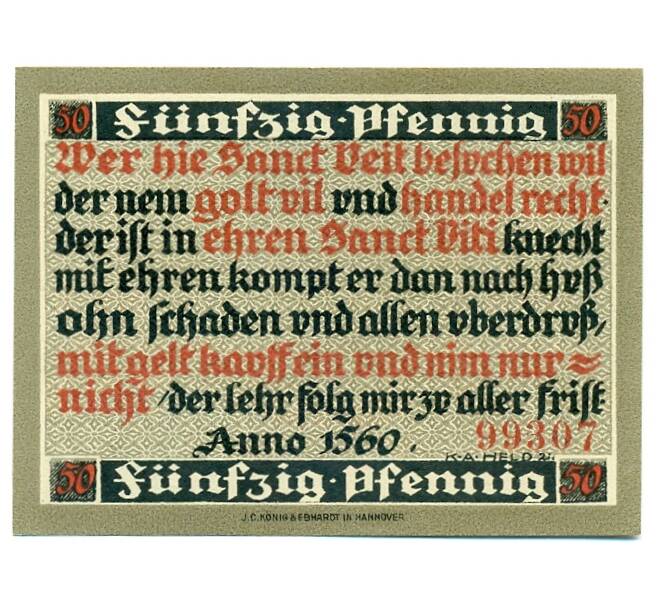 50 Fünfzig·Pfennig 50
Wer hie Sanct Veit besvchen wil
der nem golt vil vnd handel recht·
der ist in ehren Sanct Viti knecht
mit ehren kompt er dan nach hvß
ohn schaden vnd allen vberdrvß,
mit gelt kauff ein vnd nim nur=
nicht / der lehr folg mir zv aller frist
Anno 1560. 99307
K·A·HELD 21.
50 Fünfzig·Pfennig 50
J.C.KÖNIG & EBHARDT IN HANNOVER